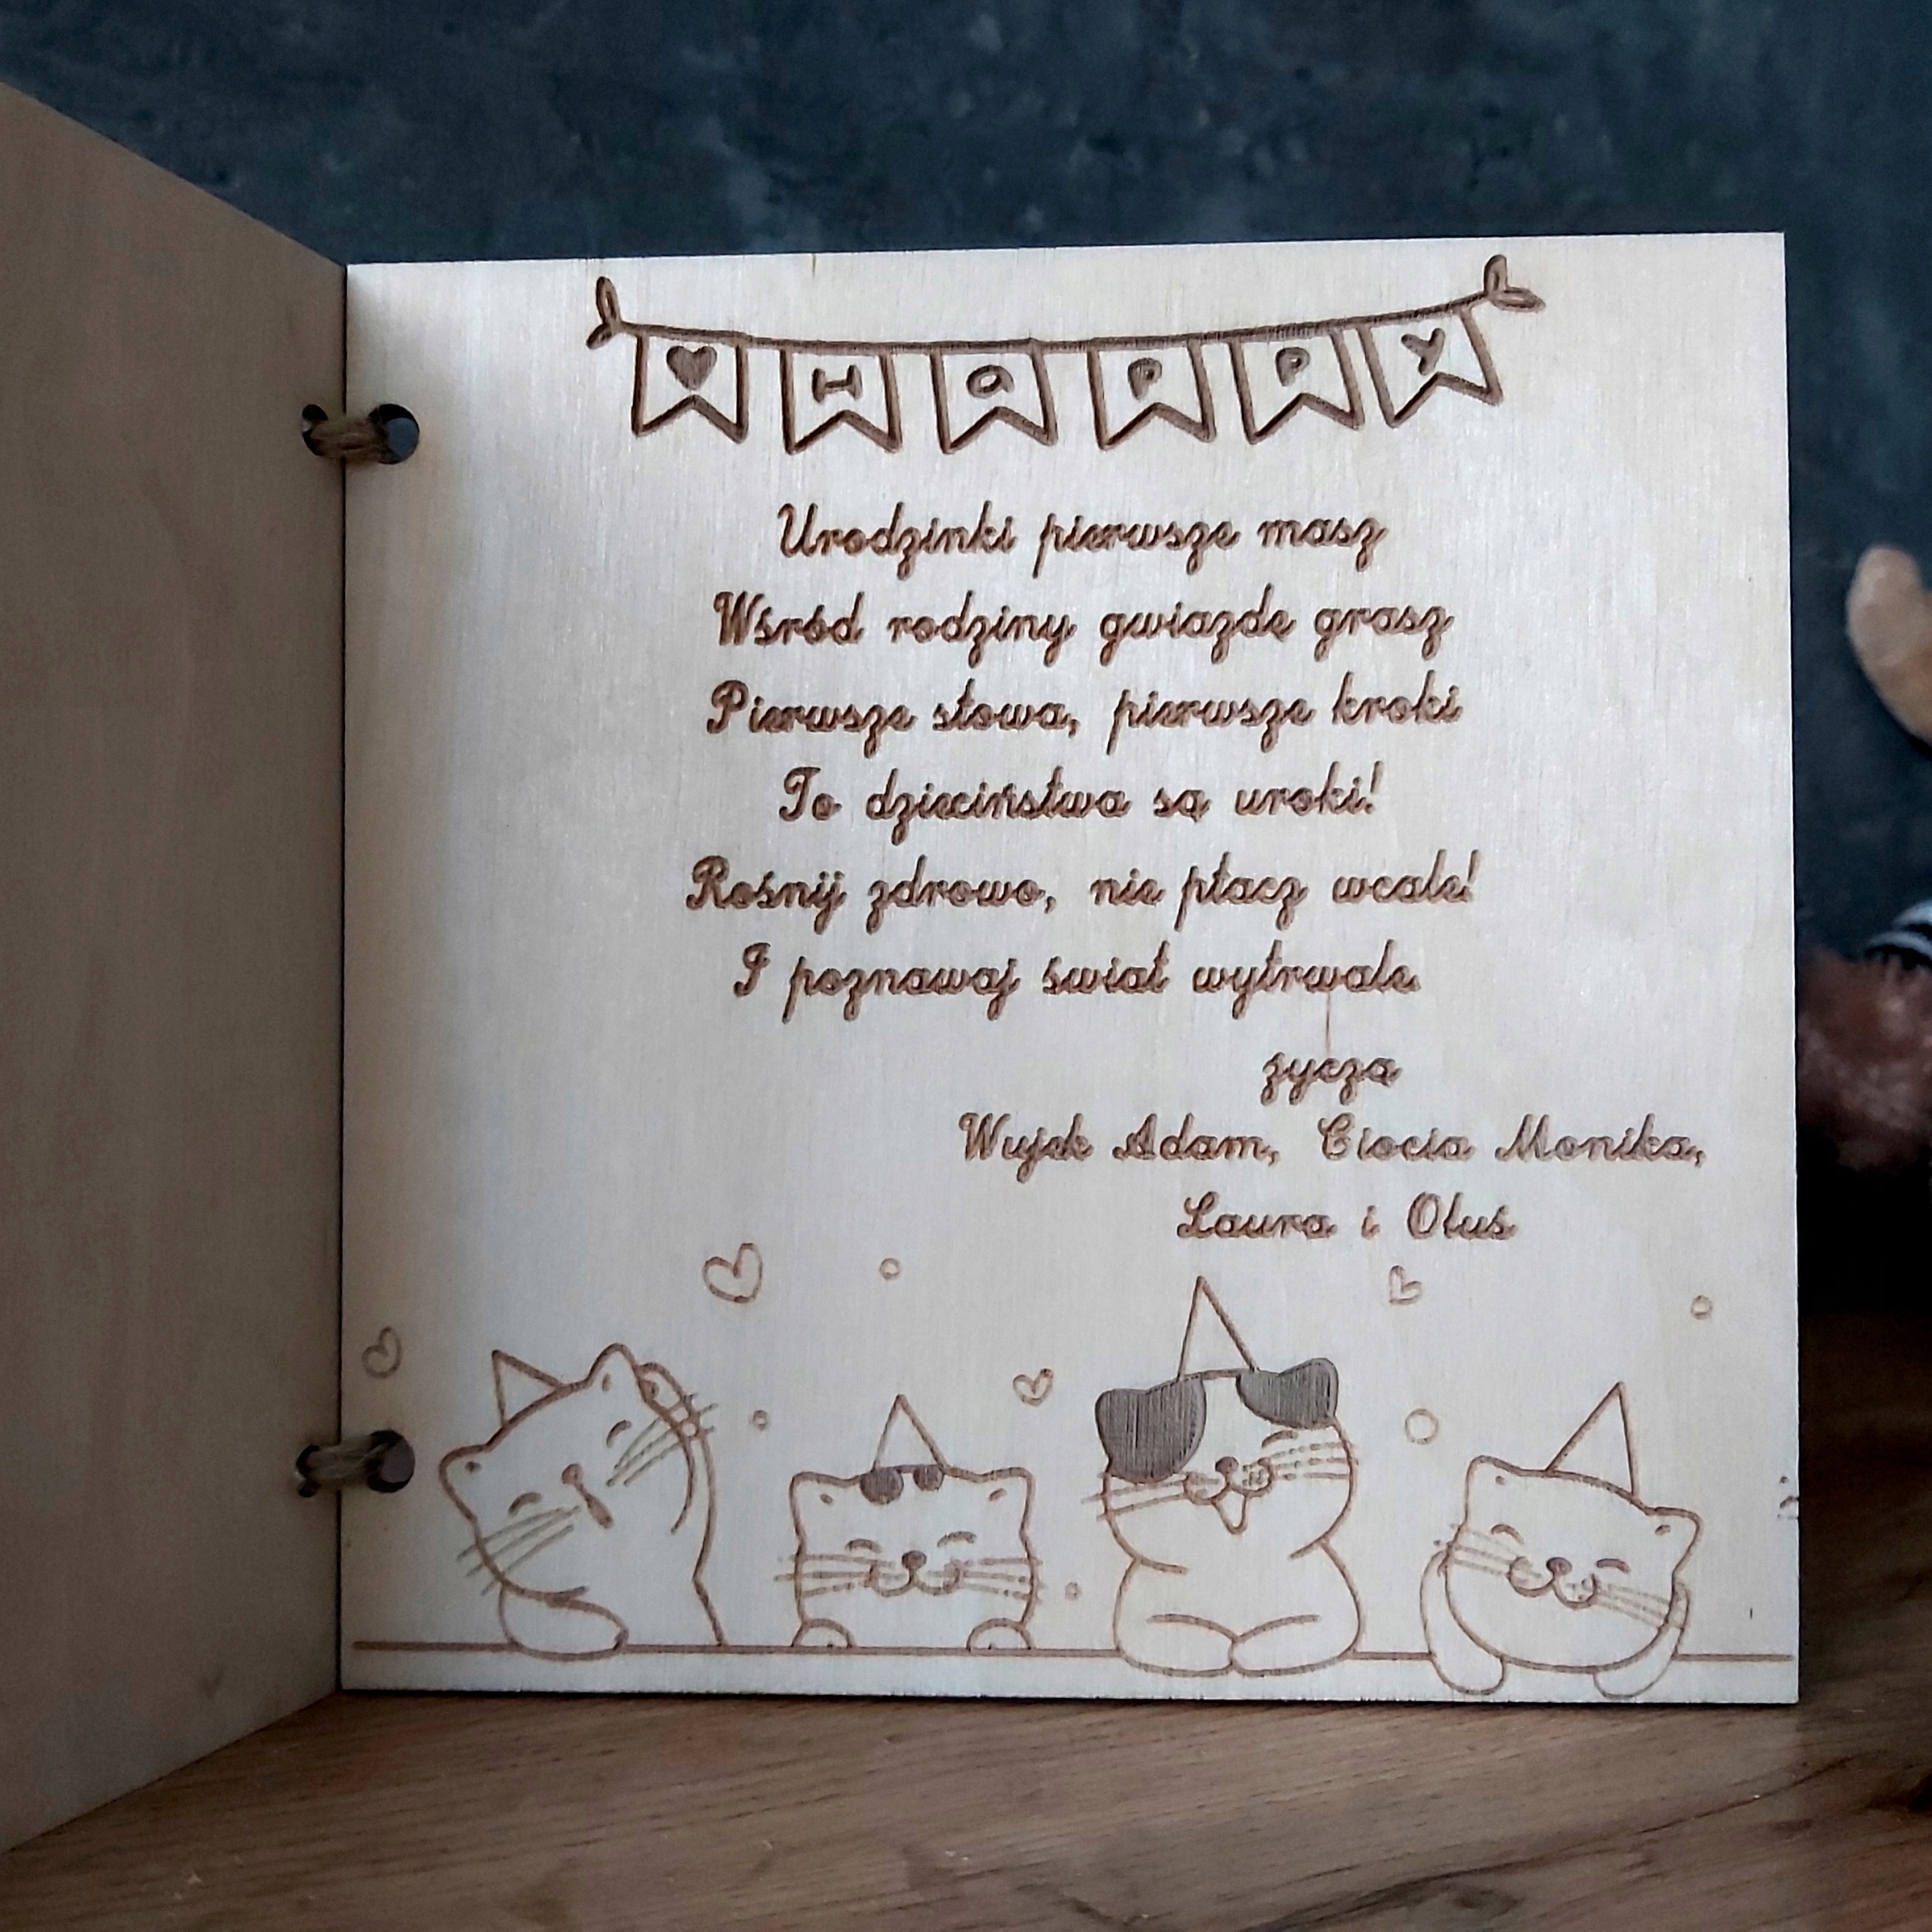 ♥ HaPPY
Urodzinki pierwsze masz
Wśród rodziny gwiazdę grasz
Pierwsze słowa, pierwsze kroki
To dzieciństwa są uroki!
Rośnij zdrowo, nie płacz wcale!
I poznawaj świat wytrwale
życzą
Wujek Adam, Ciocia Monika,
Laura i Oluś